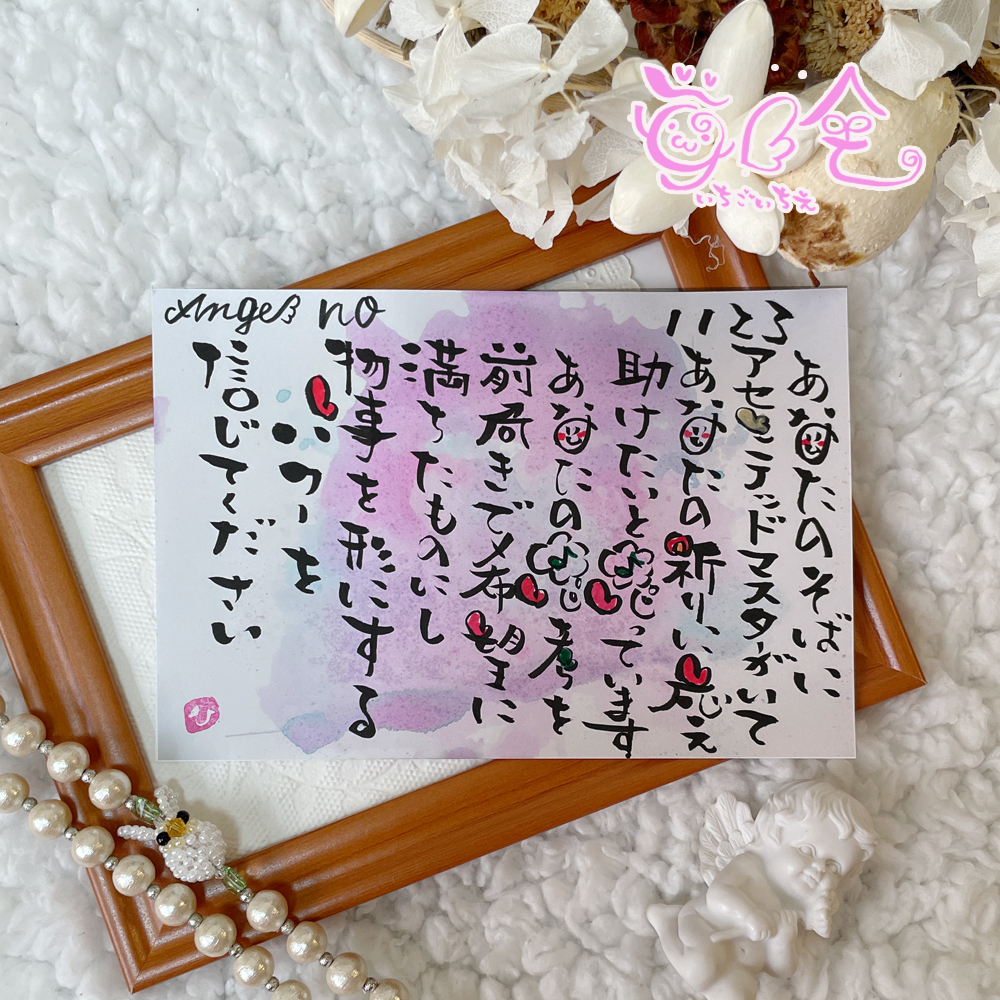 いちごいちえ
Angel no 1123
あなたのそばに
アセンデッドマスターがいて
あなたの祈りに応え
助けたいと思っています
あなたの思考を
前向きで希望に
満ちたものにし
物事を形にする
パワーを
信じてください